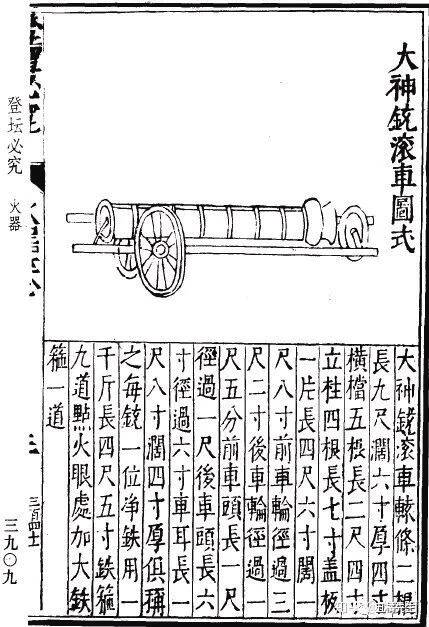 大神銃滚車圖式
大神銃滚車轅條二根
長九尺濶六寸厚四寸
横檔五根長二尺四寸
立柱四根長七寸盖板
一片長四尺六寸闊一
尺八寸前車輪徑過三
尺二寸後車輪徑過一
尺五分前車頭長一尺
徑過一尺後車頭長六
寸徑過六寸車耳長一
尺八寸濶四寸厚俱稱
之每銃一位净鉄用一
千斤長四尺五寸鉄箍
九道點火眼處加大鉄
箍一道
登坛必究 火器
三九〇九
知乎